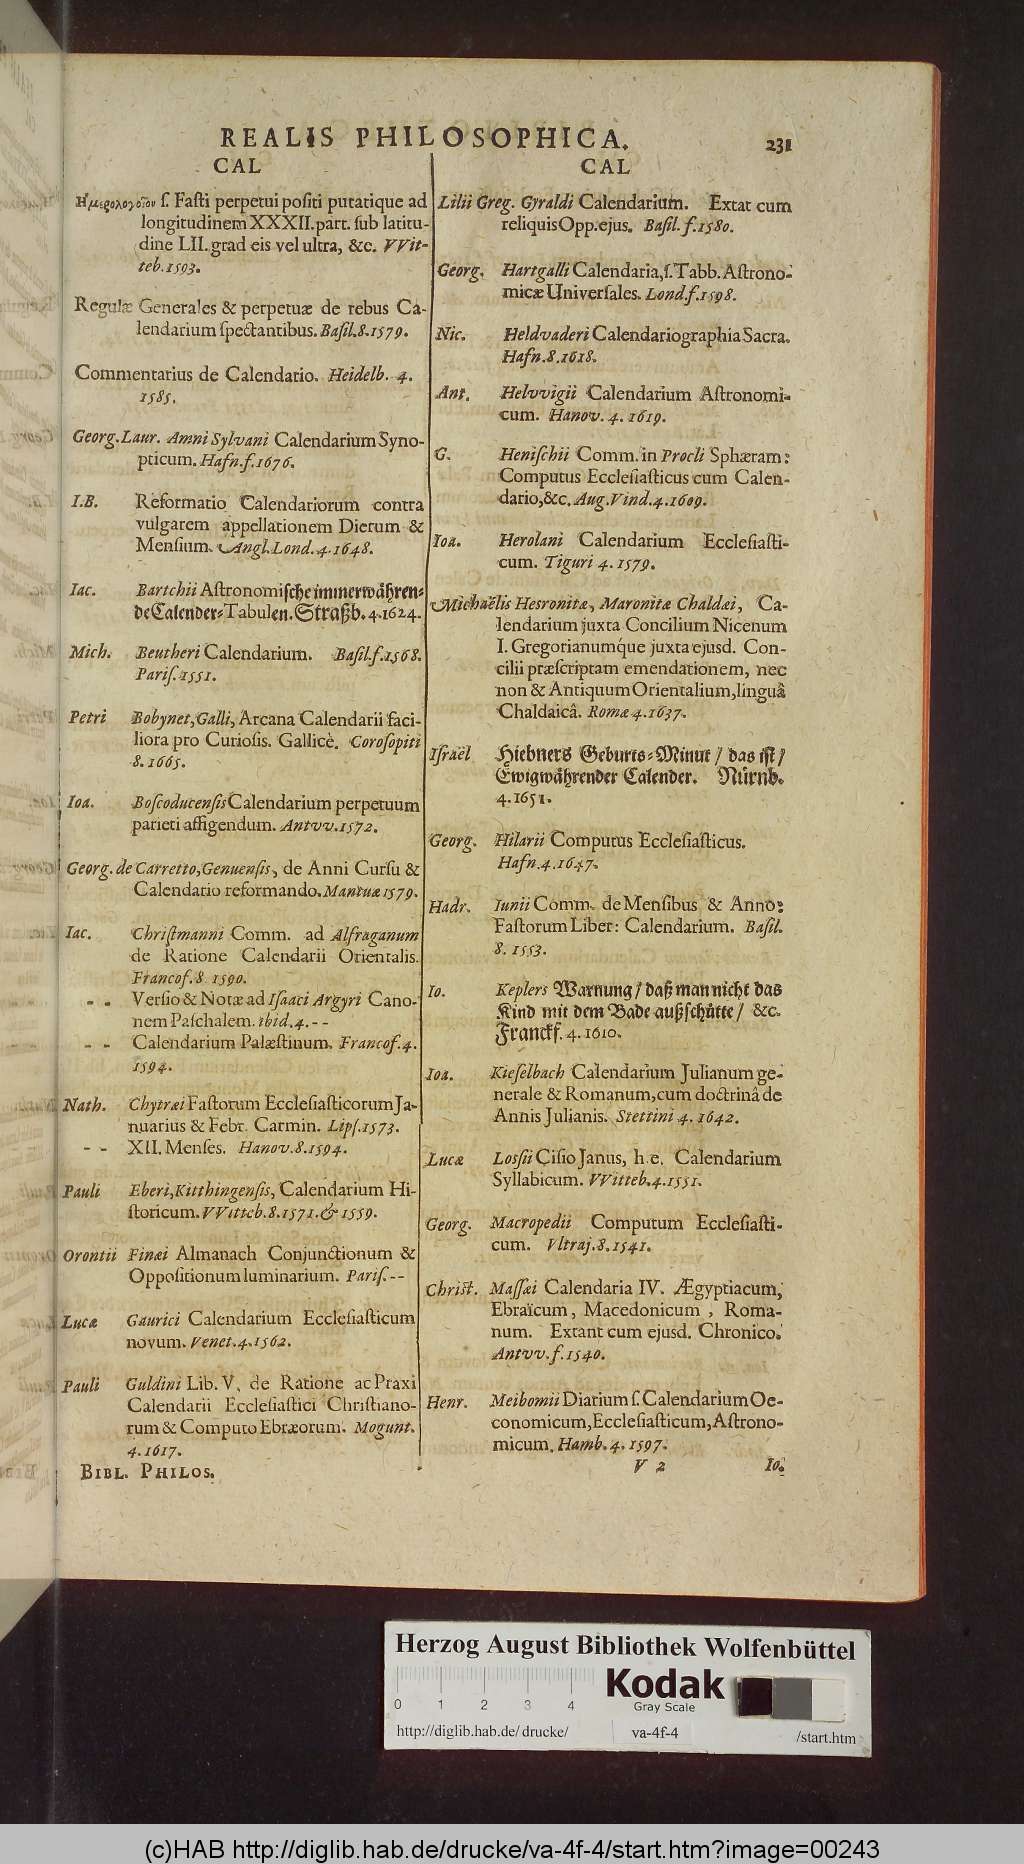 REALIS PHILOSOPHICA.
231
CAL
Ἡμερολογοῖον ſ. Faſti perpetui poſiti putatique ad
longitudinem XXXII. part. ſub latitu-
dine LII. grad eis vel ultra, &c. VVit-
teb. 1593.
Regulæ Generales & perpetuæ de rebus Ca-
lendarium ſpectantibus. Baſil. 8. 1579.
Commentarius de Calendario. Heidelb. 4.
1585.
Georg. Laur. Amni Sylvani Calendarium Syno-
pticum. Hafn. f. 1676.
I. B. Reformatio Calendariorum contra
vulgarem appellationem Dierum &
Menſium. Angl. Lond. 4. 1648.
Iac. Bartchii Aſtronomiſche immerwåhren-
de Calender-Tabulen. Straßb. 4. 1624.
Mich. Beutheri Calendarium. Baſil. f. 1568.
Pariſ. 1551.
Petri Bobynet, Galli, Arcana Calendarii faci-
liora pro Curioſis. Gallicè. Coroſopiti
8. 1665.
Ioa. Boſcoducenſis Calendarium perpetuum
parieti affigendum. Antvv. 1572.
Georg. de Carretto, Genuenſis, de Anni Curſu &
Calendario reformando. Mantuæ 1579.
Iac. Chriſtmanni Comm. ad Alfraganum
de Ratione Calendarii Orientalis.
Francof. 8. 1590.
- - Verſio & Notæ ad Iſaaci Argyri Cano-
nem Paſchalem. ibid. 4. - -
- - Calendarium Palæſtinum. Francof. 4.
1594.
Nath. Chytræi Faſtorum Eccleſiaſticorum Ja-
nuarius & Febr. Carmin. Lipſ. 1573.
- - XII. Menſes. Hanov. 8. 1594.
Pauli Eberi, Kitthingenſis, Calendarium Hi-
ſtoricum. VVitteb. 8. 1571. & 1559.
Orontii Finæi Almanach Conjunctionum &
Oppoſitionum luminarium. Pariſ. - -
Lucæ Gaurici Calendarium Eccleſiaſticum
novum. Venet. 4. 1562.
Pauli Guldini Lib. V. de Ratione ac Praxi
Calendarii Eccleſiaſtici Chriſtiano-
rum & Computo Ebræorum. Mogunt.
4. 1617.
BIBL. PHILOS.
CAL
Lilii Greg. Gyraldi Calendarium. Extat cum
reliquis Opp. ejus. Baſil. f. 1580.
Georg. Hartgalli Calendaria, ſ. Tabb. Aſtrono-
micæ Univerſales. Lond. f. 1598.
Nic. Heldvaderi Calendariographia Sacra.
Hafn. 8. 1618.
Ant. Helvvigii Calendarium Aſtronomi-
cum. Hanov. 4. 1619.
G. Heniſchii Comm. in Procli Sphæram:
Computus Eccleſiaſticus cum Calen-
dario, &c. Aug. Vind. 4. 1609.
Ioa. Herolani Calendarium Eccleſiaſti-
cum. Tiguri 4. 1579.
Michaëlis Hesronitæ, Maronitæ Chaldæi, Ca-
lendarium juxta Concilium Nicenum
I. Gregorianumq́ue juxta ejusd. Con-
cilii præſcriptam emendationem, nec
non & Antiquum Orientalium, linguâ
Chaldaicâ. Romæ 4. 1637.
Iſraël Hiebners Geburts-Minut / das iſt /
Ewigwåhrender Calender. Nürnb.
4. 1651.
Georg. Hilarii Computus Eccleſiaſticus.
Hafn. 4. 1647.
Hadr. Iunii Comm. de Menſibus & Anno:
Faſtorum Liber: Calendarium. Baſil.
8. 1553.
Io. Keplers Warnung / daß man nicht das
Kind mit dem Bade außſchůtte / &c.
Franckf. 4. 1610.
Ioa. Kieſelbach Calendarium Julianum ge-
nerale & Romanum, cum doctrinâ de
Annis Julianis. Stettini 4. 1642.
Lucæ Loſſii Ciſio Janus, h. e. Calendarium
Syllabicum. VVitteb. 4. 1551.
Georg. Macropedii Computum Eccleſiaſti-
cum. Vltraj. 8. 1541.
Chriſt. Maſſæi Calendaria IV. Ægyptiacum,
Ebraïcum, Macedonicum, Roma-
num. Extant cum ejusd. Chronico.
Antvv. f. 1540.
Henr. Meibomii Diarium ſ. Calendarium Oe-
conomicum, Eccleſiaſticum, Aſtrono-
micum. Hamb. 4. 1597.
V 2 Io.
Herzog August Bibliothek Wolfenbüttel
0 1 2 3 4
Kodak
Gray Scale
http://diglib.hab.de/ drucke/ va-4f-4 /start.htm
(c)HAB http://diglib.hab.de/drucke/va-4f-4/start.htm?image=00243